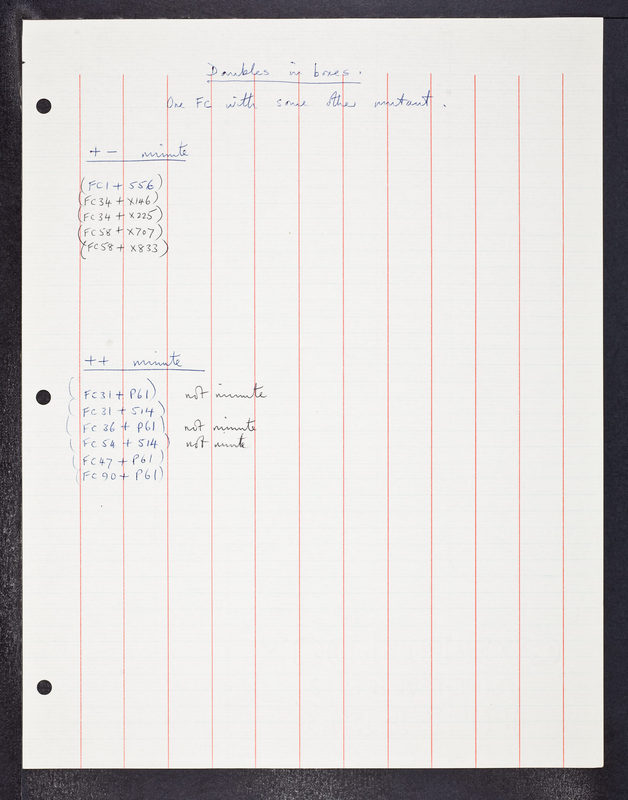 Doubles in boxes.
One FC with some other mutant.
+ - minute
(FC1 + 556)
(FC34 + X146)
(FC34 + X225)
(FC58 + X707)
(FC58 + X833)
++ minute
(FC31 + P61) not minute
(FC31 + 514)
(FC36 + P61) not minute
(FC54 + 514) not minute
(FC47 + P61)
(FC90 + P61)